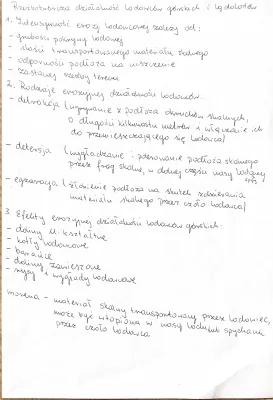 Rzeźbotwórcza działalność lodowców górskich i lądolodów
1. Intensywność erozji lodowcowej zależy od:
- grubości pokrywy lodowej
- ilości transportowanego materiału skalnego
- odporności podłoża na niszczenie
- zastanej rzeźby terenu
2. Rodzaje erozyjnej działalności lodowców:
- detrakcja (wyrywanie z podłoża okruchów skalnych,
o długości kilkunastu metrów i włączanie ich
do przemieszczającego się lodowca)
- detersja (wygładzanie i rysowanie podłoża skalnego
przez frag. skalne, w dolnej części masy lodowej)
- egzaracja (żłobienie podłoża na skutek zdzierania
materiału skalnego przez czoło lodowca)
3. Efekty erozyjnej działalności lodowców górskich:
- doliny U-kształtne
- kotły lodowcowe
- barańce
- doliny zawieszone
- rysy i wygłady lodowcowe
morena - materiał skalny transportowany przez lodowiec,
może być wtopiona w masy lodu lub spychana
przez czoło lodowca